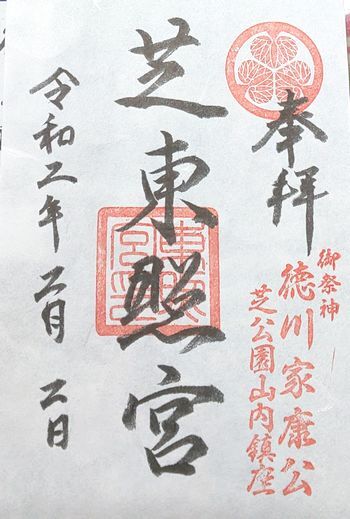 奉拝
御祭神
徳川家康公
芝公園山内鎮座
芝東照宮
令和二年 二月 二日